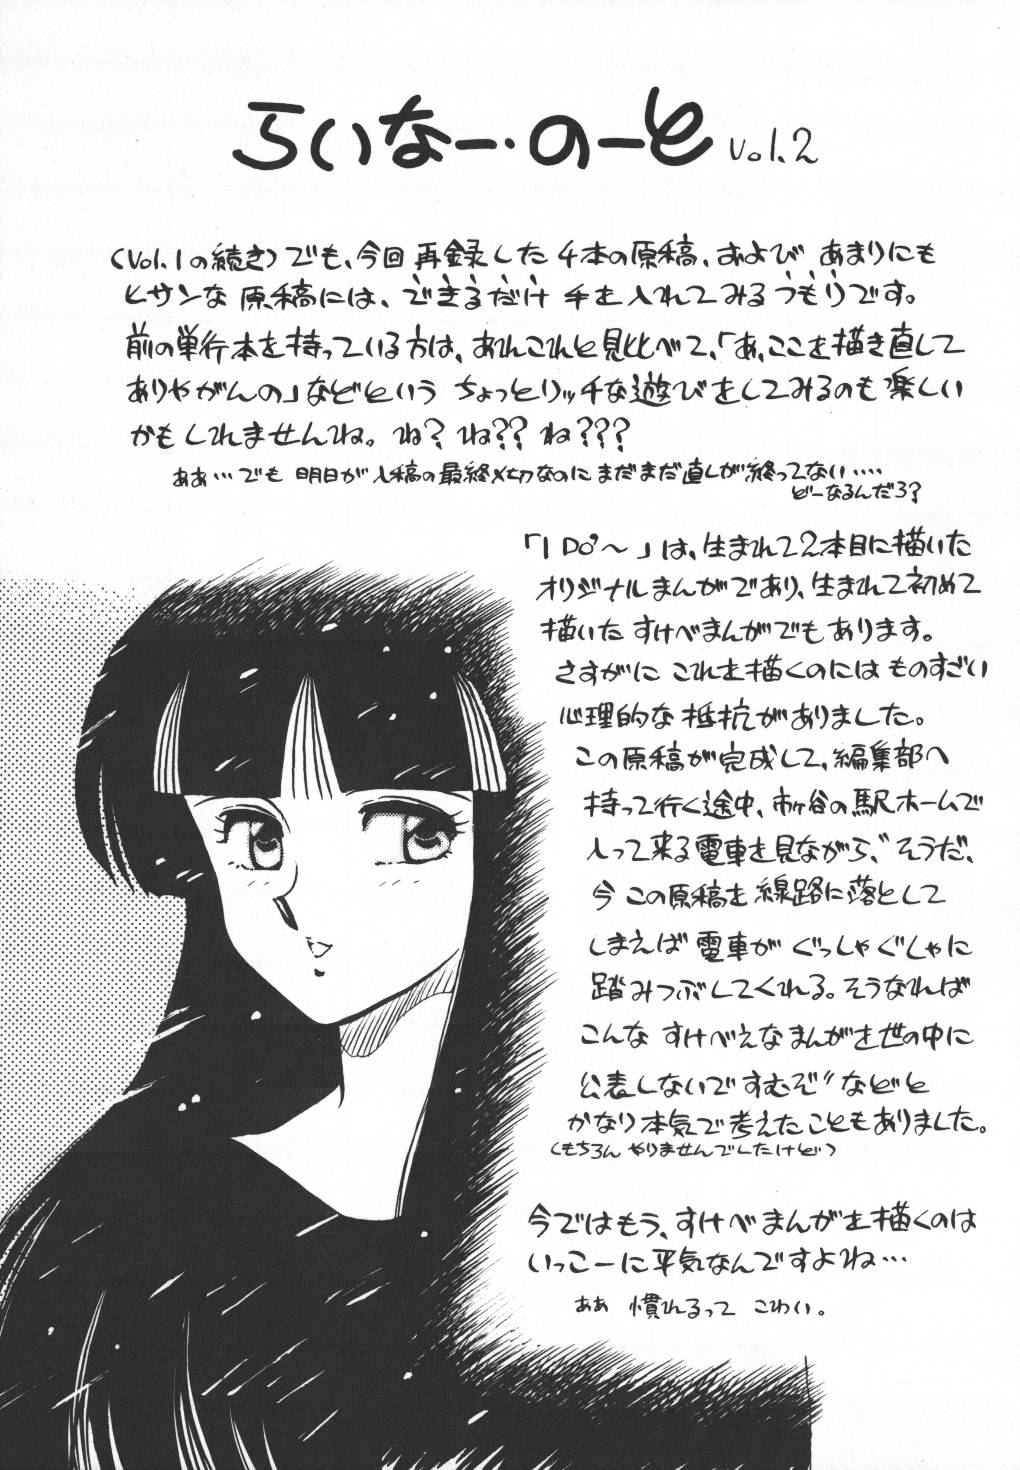 らいなー・のーと vol.2
(Vol.1の続き)でも、今回 再録した 4本の原稿、および あまりにも
ヒサンな 原稿には、できるだけ 手を入れてみるつもりです。
前の単行本を持っている方は、あれこれと見比べて、「あ、ここを描き直して
ありやがんの」などという ちょっとリッチな遊びをしてみるのも楽しい
かもしれませんね。ね? ね?? ね???
ああ…でも 明日が 入稿の最終〆切なのに まだまだ直しが終ってない‥‥
どーなるんだろ?
「I Do〜」は、生まれて2本目に描いた
オリジナルまんがであり、生まれて初めて
描いた すけべまんがでもあります。
さすがに これを描くのには ものすごい
心理的な 抵抗がありました。
この原稿が完成して、編集部へ
持って行く途中、市ヶ谷の駅ホームで
入って来る電車を見ながら、〝そうだ、
今 この原稿を 線路に落として
しまえば 電車が ぐっしゃぐしゃに
踏みつぶしてくれる。そうなれば
こんな すけべえなまんがを世の中に
公表しないですむぞ〟などと
かなり本気で考えたこともありました。
(もちろん やりませんでしたけど)
今ではもう、すけべまんがを描くのは
いっこーに平気なんですよね…
ああ 慣れるって こわい。